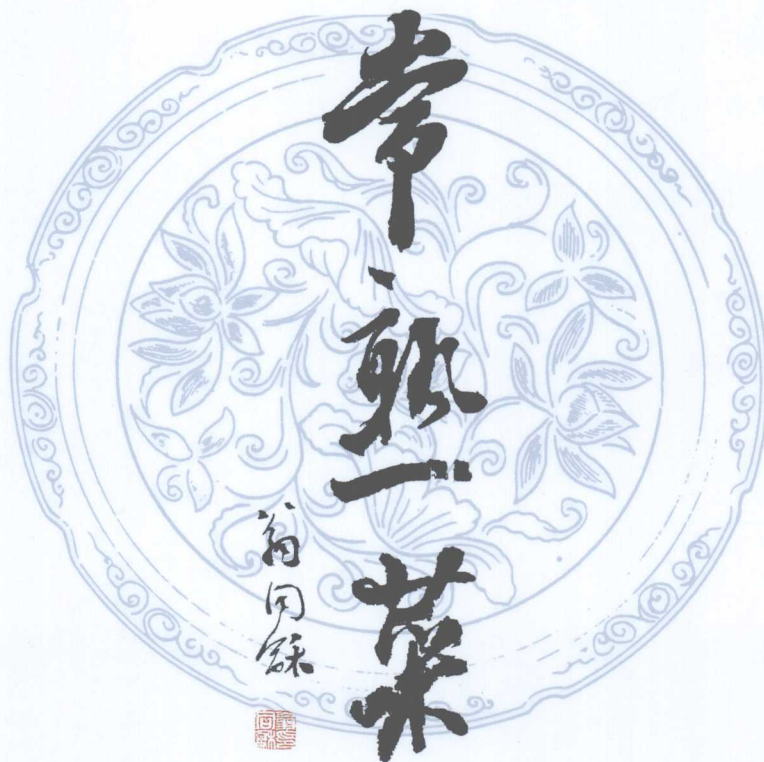 常熟菜
翁同龢